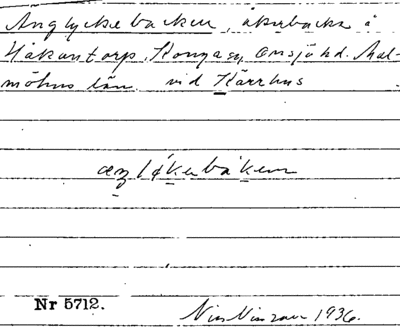 Änglyckebacken, åkerbacke i
Håkantorp, Konga sn, Onsjö hd. Mal-
möhus län. vid Kärrhus
Nr 5712.
Nils Nilsson 1936.